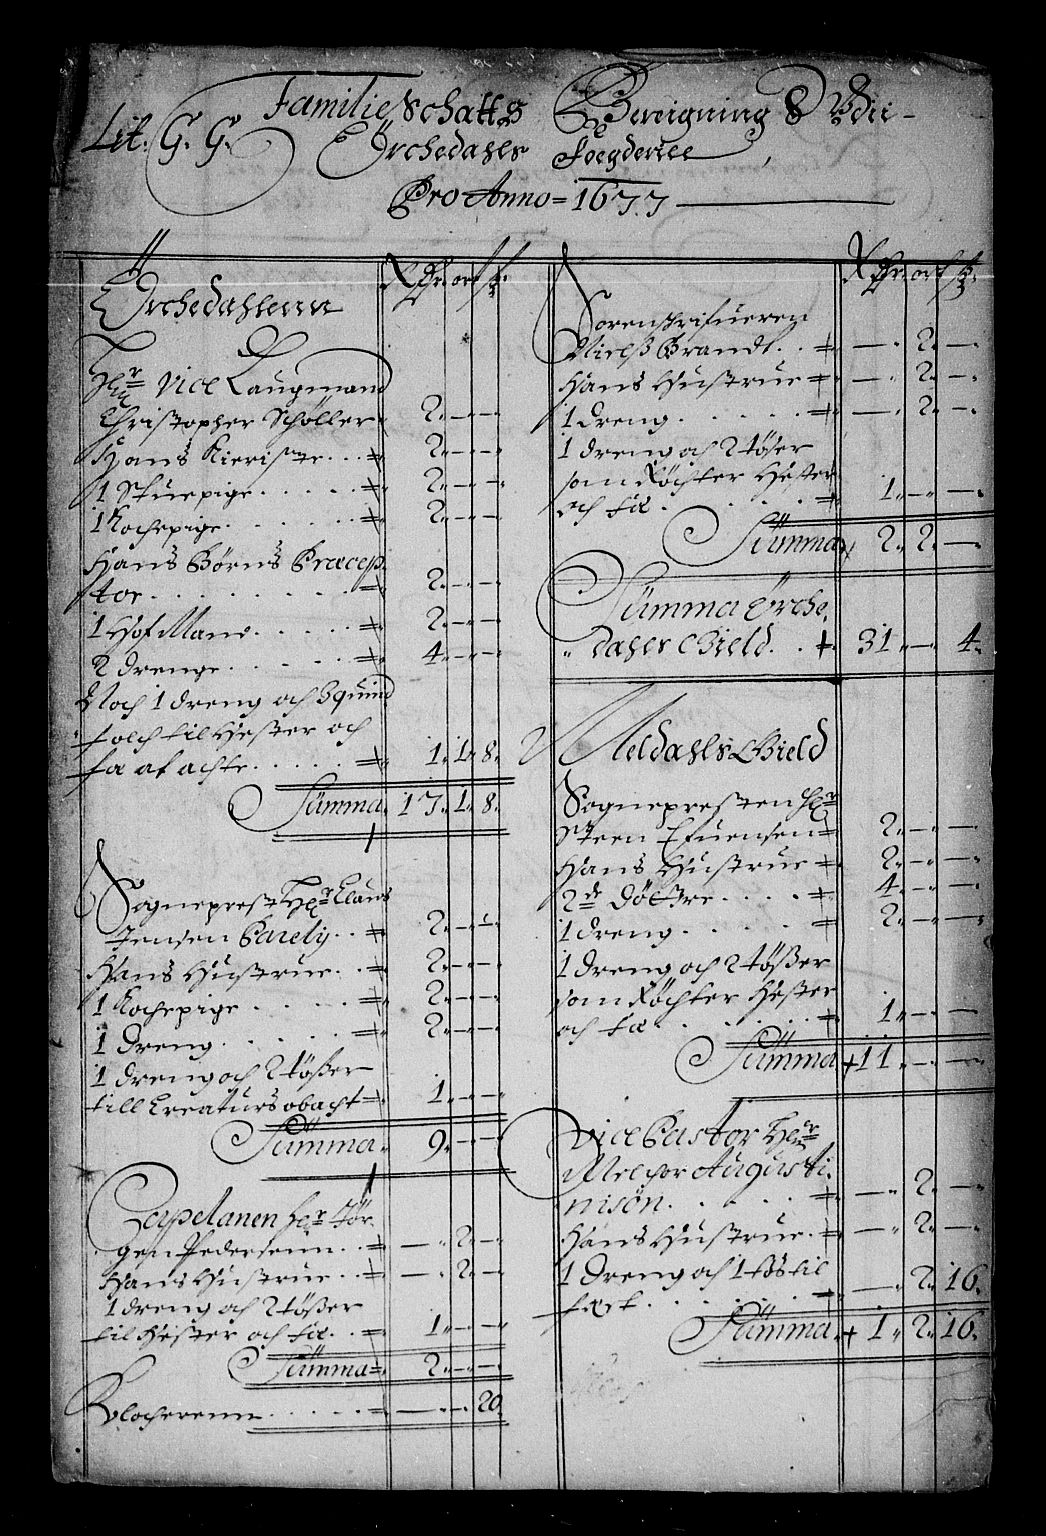 Lit. G. G.
Familie Schatts Bereigning
Örchedahls Foegderiee
Pro Anno = 1677
Rdr. ort ß.
Örchedahlenn
Hr. Vice Laugmand
Christopher Schøller 2 „ — „ —
Hans Kieriste 2 „ — „ —
1 Stuepige 2 „ — „ —
1 Kochepige 2 „ — „ —
Hans Børns Præcep
tor 2 „ — „ —
1 Hof Mand 2 „ — „ —
2 drenge 4 „ — „ —
Noch 1 dreng och 3 quind
folch til Hester och
fæ at achte 1 „ 1 „ 8
Summa 17 „ 1 „ 8
Sogneprest Hr. Claus
Jensen Parelij 2 „ — „ —
Hans Hustrue 2 „ — „ —
1 Kochepige 2 „ — „ —
1 dreng 2 „ — „ —
1 dreng och 2 tøßer
till Creaturs obacht 1 „ — „ —
Summa 9 „ — „ —
Capelanen Hr. Jør
gen Pedersenn — „ 2 „ —
Hans Hustrue — „ 2 „ —
1 dreng och 2 tøßer
til Hester och fæ 1 „ — „ —
Summa 2 „ — „ —
Klocherenn — „ — „ 20
Rdr. ort ß.
Sorenschrifueren
Nielß Brandt — „ 2 „ —
Hans Hustrue — „ 2 „ —
1 dreng — „ 2 „ —
1 dreng och 2 tøser
som Røchter Hester
och fæ 1 „ — „ —
Summa 2 „ 2 „ —
Summa Ørche
dahls Gield 31 „ — „ 4
Meldahls Gield
Sognepresten Hr
Steen Efuensen 2 „ — „ —
Hans Hustrue 2 „ — „ —
2de Døttre 4 „ — „ —
1 dreng 2 „ — „ —
1 dreng och 2 tøßer
som Røchter Hester
och fæ 1 „ — „ —
Summa 11 „ — „ —
Vice Pastor Hr
Melchor Augusti
nisøn — „ 2 „ —
Hans Hustrue — „ 2 „ —
1 dreng och 1 tøs til
fæet — „ 2 „ 16
Summa 1 „ 2 „ 16